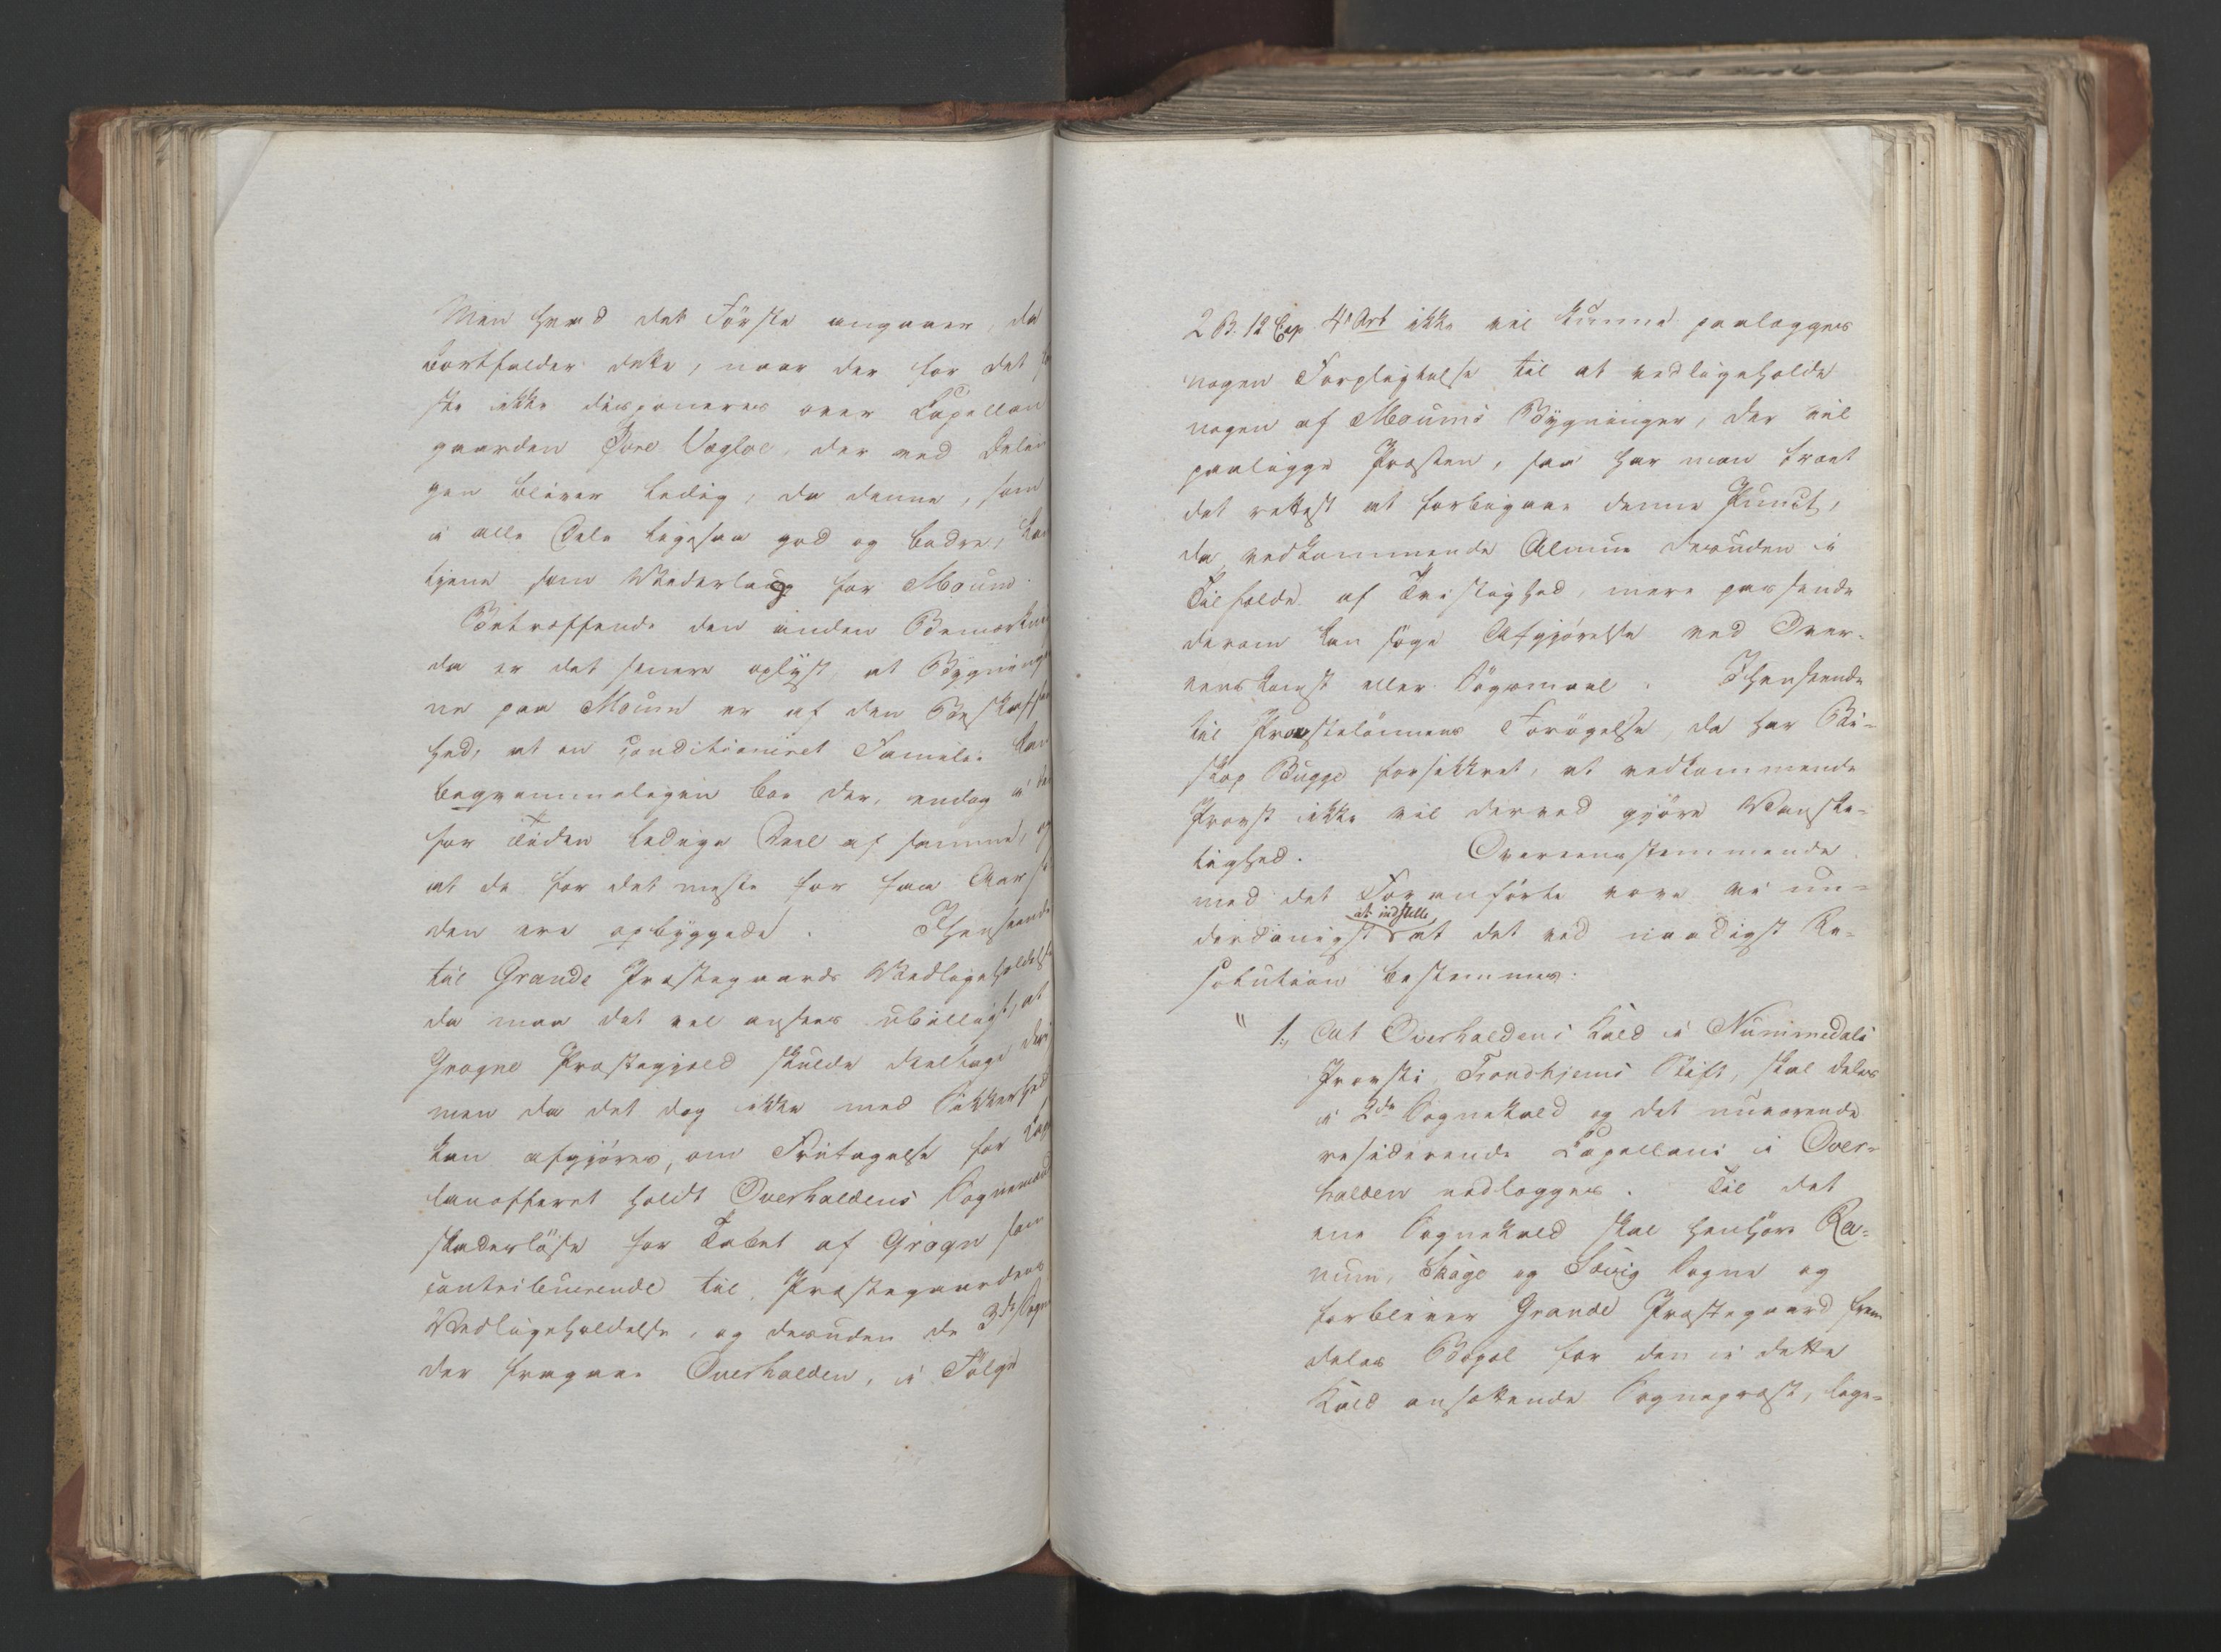 Men hvad det Förste angaaer, da
bortfalder dette, naar der for det
ste ikke disponeres over Capellan
gaarden Övre Vægloe, der ved Delin
gen bliver ledig, da denne, som
i alle Dele ligesaa god og bedre, kan
tjene som Vederlaug for Moum.
Betræffende den anden Bemærkni
da er det senere oplyst, at Bygninge
ne paa Moum er af den Beskaffen
hed, at en conditioneret Familie kan
beqvemmeligen boe der, endog i den
for Tiden ledige Deel af samme, og
at de for det meste for faa Aar si
den ere opbyggede. Ihenseende
til Grande Præstegaards Vedligeholdelse
da maa det vel ansees ubilligt, at
Grogne Præstegjeld skulde deeltage deri
men da det dog ikke med Sikkerhed
kan afgjøres, om Fritagelse for Cape
lanofferet holdt Overhaldens Sognemænd
skadeslöse for Tabet af Grogn som
contribuerende til Præstegaardens
Vedligeholdelse, og desuden de 3de Sogne
der fragaae Overhalden, i Følge
2 B. 12 Cap. 4de Art ikke vil kunne paalægges
nogen Forpligtelse til at vedligeholde
nogen af Moums Bygninger, der vil
paaligge Præsten, saa har man troet
det rettest at forbigaae denne Punct,
da vedkommende Almue desuden i
Tilfælde af Tvistighed, mere passende
derom kan söge Afgjörelse ved Over-
eenskomst eller Sögsmaal. Ihenseende
til Provstelönnens Forögelse, da har Bi-
skop Bugge forsikkret, at vedkommende
Provst ikke vil derved gjöre Vanske-
lighed. Overeensstemmende
med det Foranförte vove vi un-
at indstille
derdanigst at det ved naadigst Re-
solution bestemmes:
" 1., At Overhaldens Kald i Nummedals
Provsti, Trondhjems Stift, skal deles
i 2de Sognekald og det nuværende
residerende Capellani i Over-
halden nedlægges. Til det
ene Sognekald skal henhöre Ra-
num, Skage og Vie Sogne og
forbliver Grande Præstegaard frem
deles Bopæl for den i dette
Kald ansættende Sognepræst, lige-